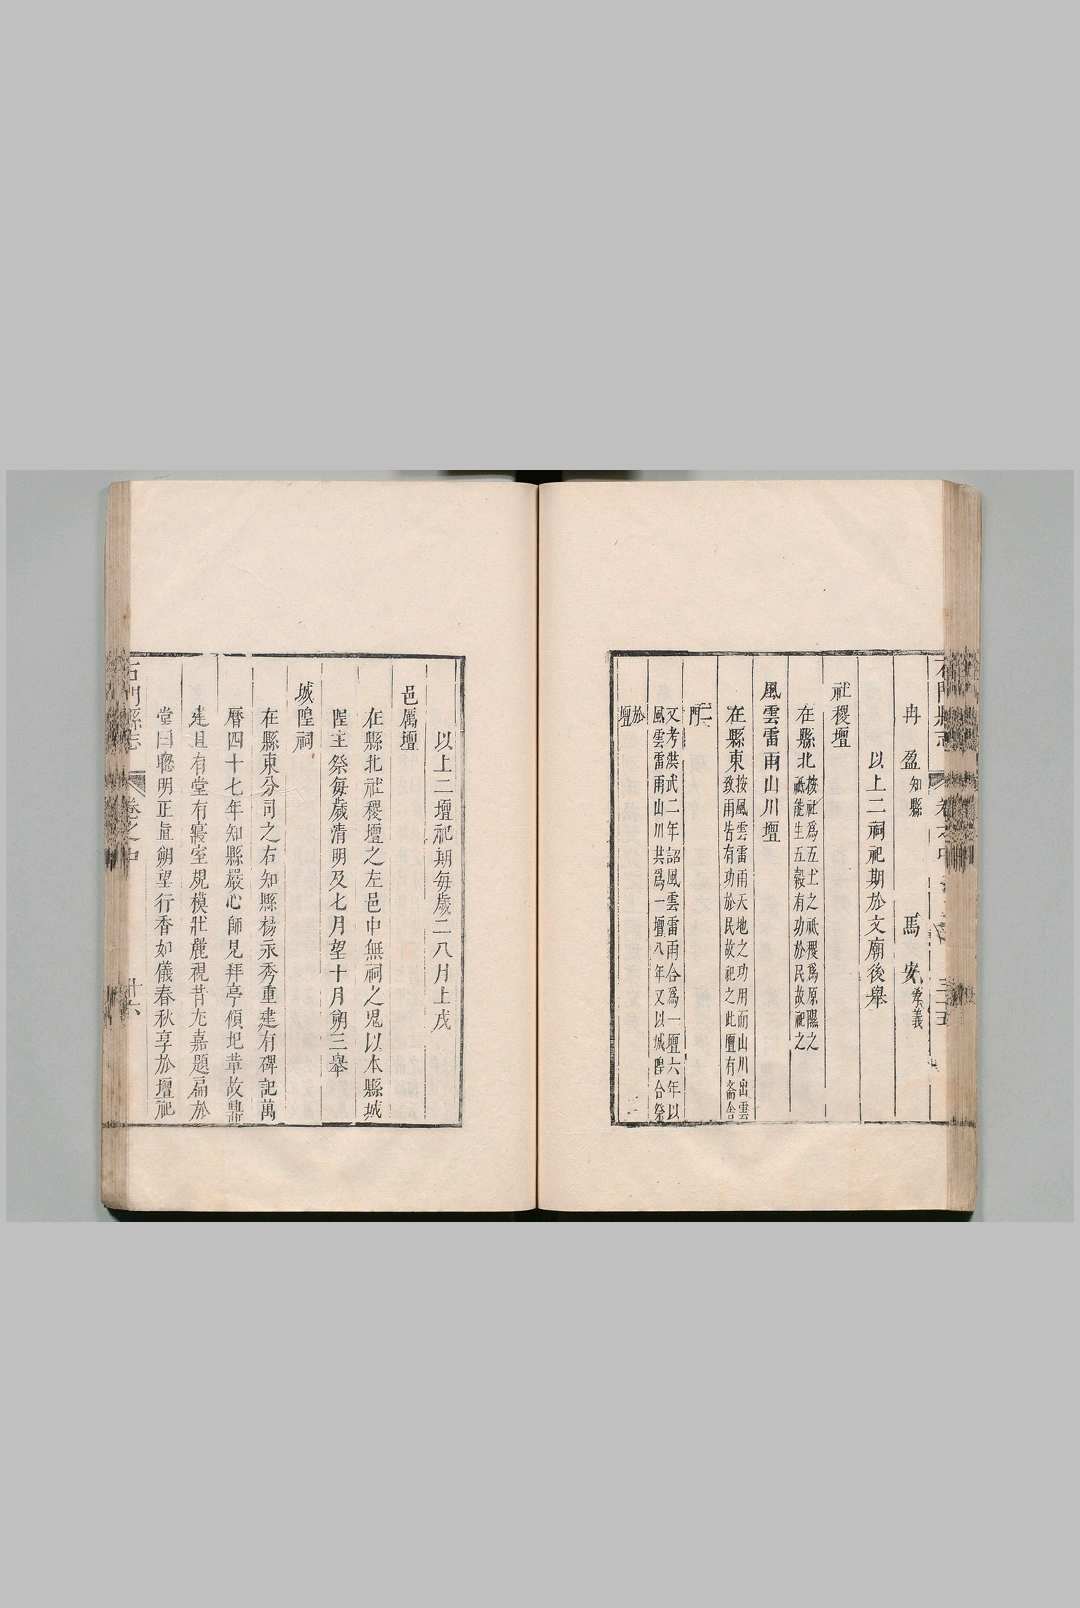 冉盈知縣　馬安孝義
以上二祠祀期於文廟後舉
社稷壇
在縣北按社爲五土之祗稷爲原隰之
祗能生五穀有功於民故祀之
風雲雷雨山川壇
在縣東按風雲雷雨天地之功用而山川出雲
致雨皆有功於民故祀之此壇有齋舍
二
門
又考洪武二年詔風雲雷雨合爲一壇六年以
風雲雷雨山川共爲一壇八年又以城隍合祭
於
壇
以上二壇祀期每歲二八月上戊
邑厲壇
在縣北社稷壇之左邑中無祠之鬼以本縣城
隍主祭每歲清明及七月望十月朔三舉
城隍祠
在縣東分司之右知縣楊永秀重建有碑記萬
曆四十七年知縣嚴心師見拜亭傾圮葺故
建且有堂有寢室規模壯麗視昔尤嘉題扁於
堂曰聰明正直朔望行香如儀春秋享於壇祀
石門縣志　卷之中　廿六